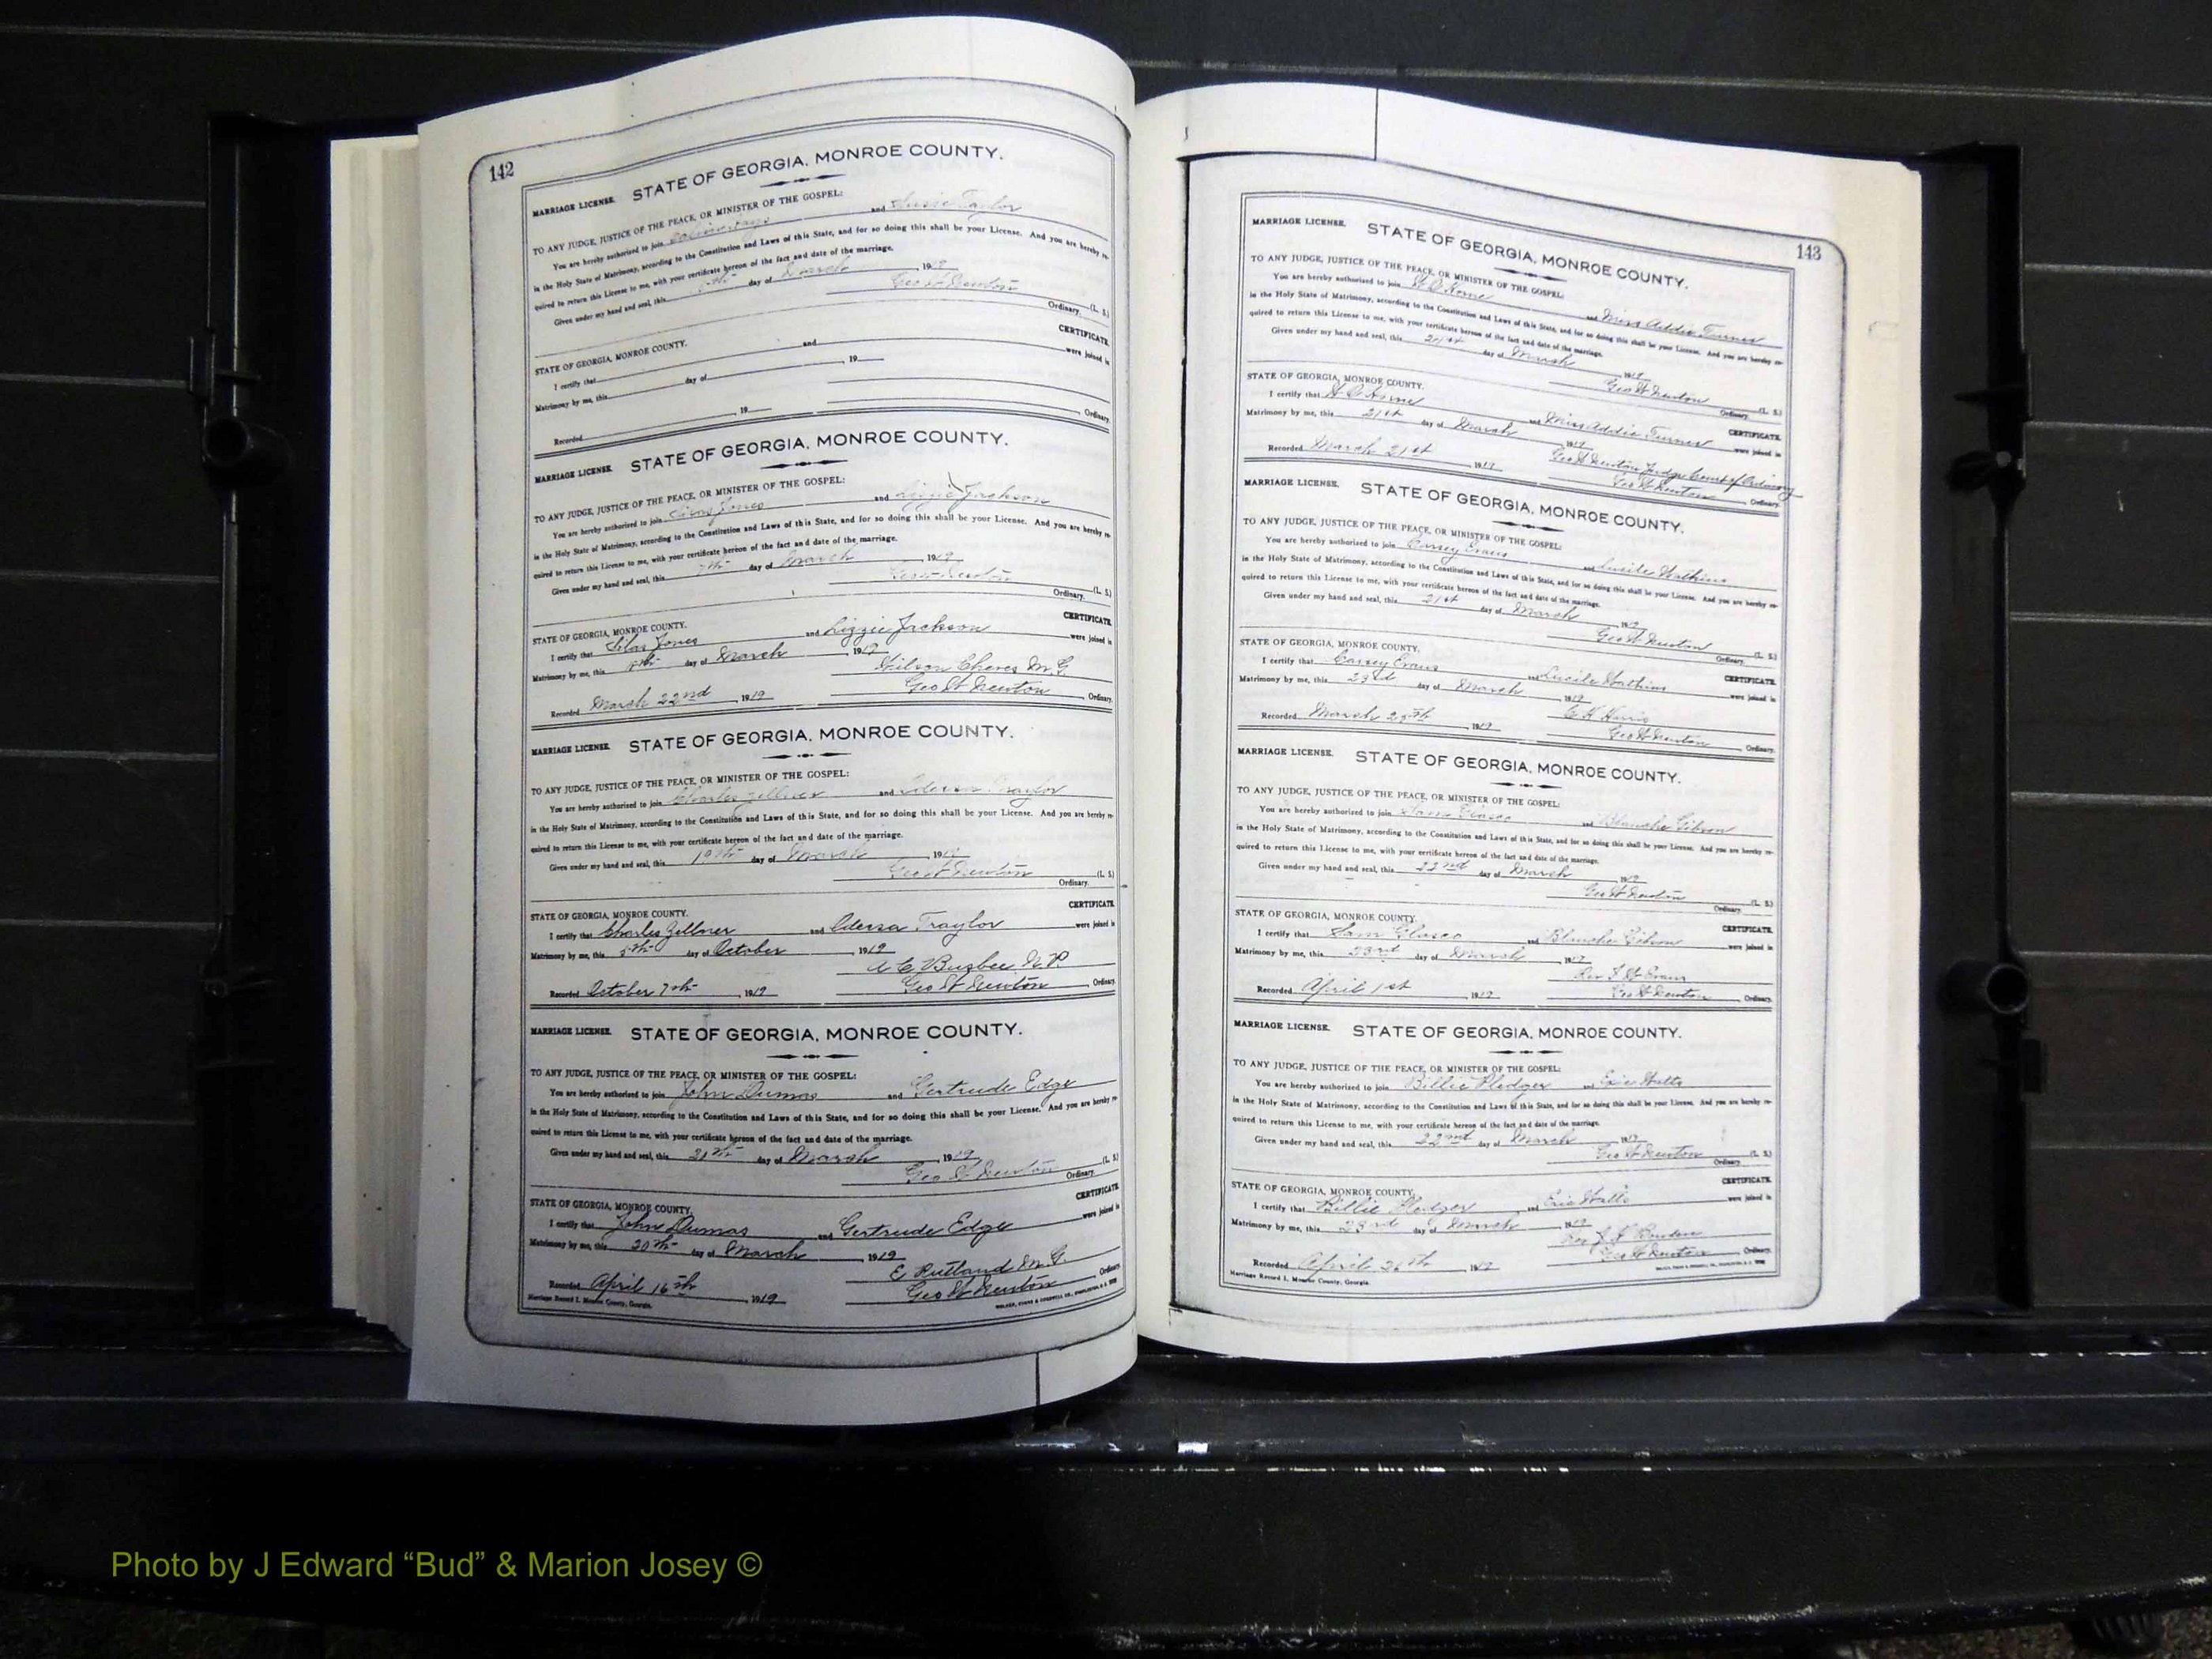 142
MARRIAGE LICENSE. STATE OF GEORGIA, MONROE COUNTY.
TO ANY JUDGE, JUSTICE OF THE PEACE, OR MINISTER OF THE GOSPEL:
You are hereby authorized to join and Susie Taylor
in the Holy State of Matrimony, according to the Constitution and Laws of this State, and for so doing this shall be your License. And you are hereby re-
quired to return this License to me, with your certificate hereon of the fact and date of the marriage.
Given under my hand and seal, this day of March 1919
Geo W Newton (L. S.)
Ordinary.
STATE OF GEORGIA, MONROE COUNTY. CERTIFICATE.
I certify that and were joined in
Matrimony by me, this day of 19
Recorded 19 Ordinary.
MARRIAGE LICENSE. STATE OF GEORGIA, MONROE COUNTY.
TO ANY JUDGE, JUSTICE OF THE PEACE, OR MINISTER OF THE GOSPEL:
You are hereby authorized to join Silas Jones and Lizzie Jackson
in the Holy State of Matrimony, according to the Constitution and Laws of this State, and for so doing this shall be your License. And you are hereby re-
quired to return this License to me, with your certificate hereon of the fact and date of the marriage.
Given under my hand and seal, this 7th day of March 1919
Geo W Newton (L. S.)
Ordinary.
STATE OF GEORGIA, MONROE COUNTY. CERTIFICATE.
I certify that Silas Jones and Lizzie Jackson were joined in
Matrimony by me, this 8th day of March 1919
Wilson Cheves M. G.
Recorded March 22nd 1919 Geo W Newton Ordinary.
MARRIAGE LICENSE. STATE OF GEORGIA, MONROE COUNTY.
TO ANY JUDGE, JUSTICE OF THE PEACE, OR MINISTER OF THE GOSPEL:
You are hereby authorized to join Charles Zellner and Odessa Traylor
in the Holy State of Matrimony, according to the Constitution and Laws of this State, and for so doing this shall be your License. And you are hereby re-
quired to return this License to me, with your certificate hereon of the fact and date of the marriage.
Given under my hand and seal, this 19th day of March 1919
Geo W Newton (L. S.)
Ordinary.
STATE OF GEORGIA, MONROE COUNTY. CERTIFICATE.
I certify that Charles Zellner and Odessa Traylor were joined in
Matrimony by me, this 5th day of October 1919
A C Busbee N. P.
Recorded October 7th 1919 Geo W Newton Ordinary.
MARRIAGE LICENSE. STATE OF GEORGIA, MONROE COUNTY.
TO ANY JUDGE, JUSTICE OF THE PEACE, OR MINISTER OF THE GOSPEL:
You are hereby authorized to join John Dumas and Gertrude Edge
in the Holy State of Matrimony, according to the Constitution and Laws of this State, and for so doing this shall be your License. And you are hereby re-
quired to return this License to me, with your certificate hereon of the fact and date of the marriage.
Given under my hand and seal, this 20th day of March 1919
Geo W Newton (L. S.)
Ordinary.
STATE OF GEORGIA, MONROE COUNTY. CERTIFICATE.
I certify that John Dumas and Gertrude Edge were joined in
Matrimony by me, this 20th day of March 1919
E Rutland M. G.
Recorded April 16th 1919 Geo W Newton Ordinary.
Marriage Record I. Monroe County, Georgia.
143
MARRIAGE LICENSE. STATE OF GEORGIA, MONROE COUNTY.
TO ANY JUDGE, JUSTICE OF THE PEACE, OR MINISTER OF THE GOSPEL:
You are hereby authorized to join Horne and Miss Addie Turner
in the Holy State of Matrimony, according to the Constitution and Laws of this State, and for so doing this shall be your License. And you are hereby re-
quired to return this License to me, with your certificate hereon of the fact and date of the marriage.
Given under my hand and seal, this 21st day of March 1919
Geo W Newton (L. S.)
Ordinary.
STATE OF GEORGIA, MONROE COUNTY. CERTIFICATE.
I certify that Horne and Miss Addie Turner were joined in
Matrimony by me, this 21st day of March 1919
Geo W Newton Judge Court of Ordinary
Recorded March 21st 1919 Geo W Newton Ordinary.
MARRIAGE LICENSE. STATE OF GEORGIA, MONROE COUNTY.
TO ANY JUDGE, JUSTICE OF THE PEACE, OR MINISTER OF THE GOSPEL:
You are hereby authorized to join Evans and Lucile Watkins
in the Holy State of Matrimony, according to the Constitution and Laws of this State, and for so doing this shall be your License. And you are hereby re-
quired to return this License to me, with your certificate hereon of the fact and date of the marriage.
Given under my hand and seal, this 21st day of March 1919
Geo W Newton (L. S.)
Ordinary.
STATE OF GEORGIA, MONROE COUNTY. CERTIFICATE.
I certify that Evans and Lucile Watkins were joined in
Matrimony by me, this 23rd day of March 1919
Harris
Recorded March 1919 Geo W Newton Ordinary.
MARRIAGE LICENSE. STATE OF GEORGIA, MONROE COUNTY.
TO ANY JUDGE, JUSTICE OF THE PEACE, OR MINISTER OF THE GOSPEL:
You are hereby authorized to join Sam Glasco and Blanche Gibson
in the Holy State of Matrimony, according to the Constitution and Laws of this State, and for so doing this shall be your License. And you are hereby re-
quired to return this License to me, with your certificate hereon of the fact and date of the marriage.
Given under my hand and seal, this 22nd day of March 1919
Geo W Newton (L. S.)
Ordinary.
STATE OF GEORGIA, MONROE COUNTY. CERTIFICATE.
I certify that Sam Glasco and Blanche Gibson were joined in
Matrimony by me, this 23rd day of March 1919
Rev Evans
Recorded April 1st 1919 Geo W Newton Ordinary.
MARRIAGE LICENSE. STATE OF GEORGIA, MONROE COUNTY.
TO ANY JUDGE, JUSTICE OF THE PEACE, OR MINISTER OF THE GOSPEL:
You are hereby authorized to join Billie Pledger and
in the Holy State of Matrimony, according to the Constitution and Laws of this State, and for so doing this shall be your License. And you are hereby re-
quired to return this License to me, with your certificate hereon of the fact and date of the marriage.
Given under my hand and seal, this 22nd day of March 1919
Geo W Newton (L. S.)
Ordinary.
STATE OF GEORGIA, MONROE COUNTY. CERTIFICATE.
I certify that Billie Pledger and were joined in
Matrimony by me, this 23rd day of March 1919
Rev
Recorded April 26th 1919 Geo W Newton Ordinary.
Marriage Record I. Monroe County, Georgia.
Photo by J Edward “Bud” & Marion Josey ©